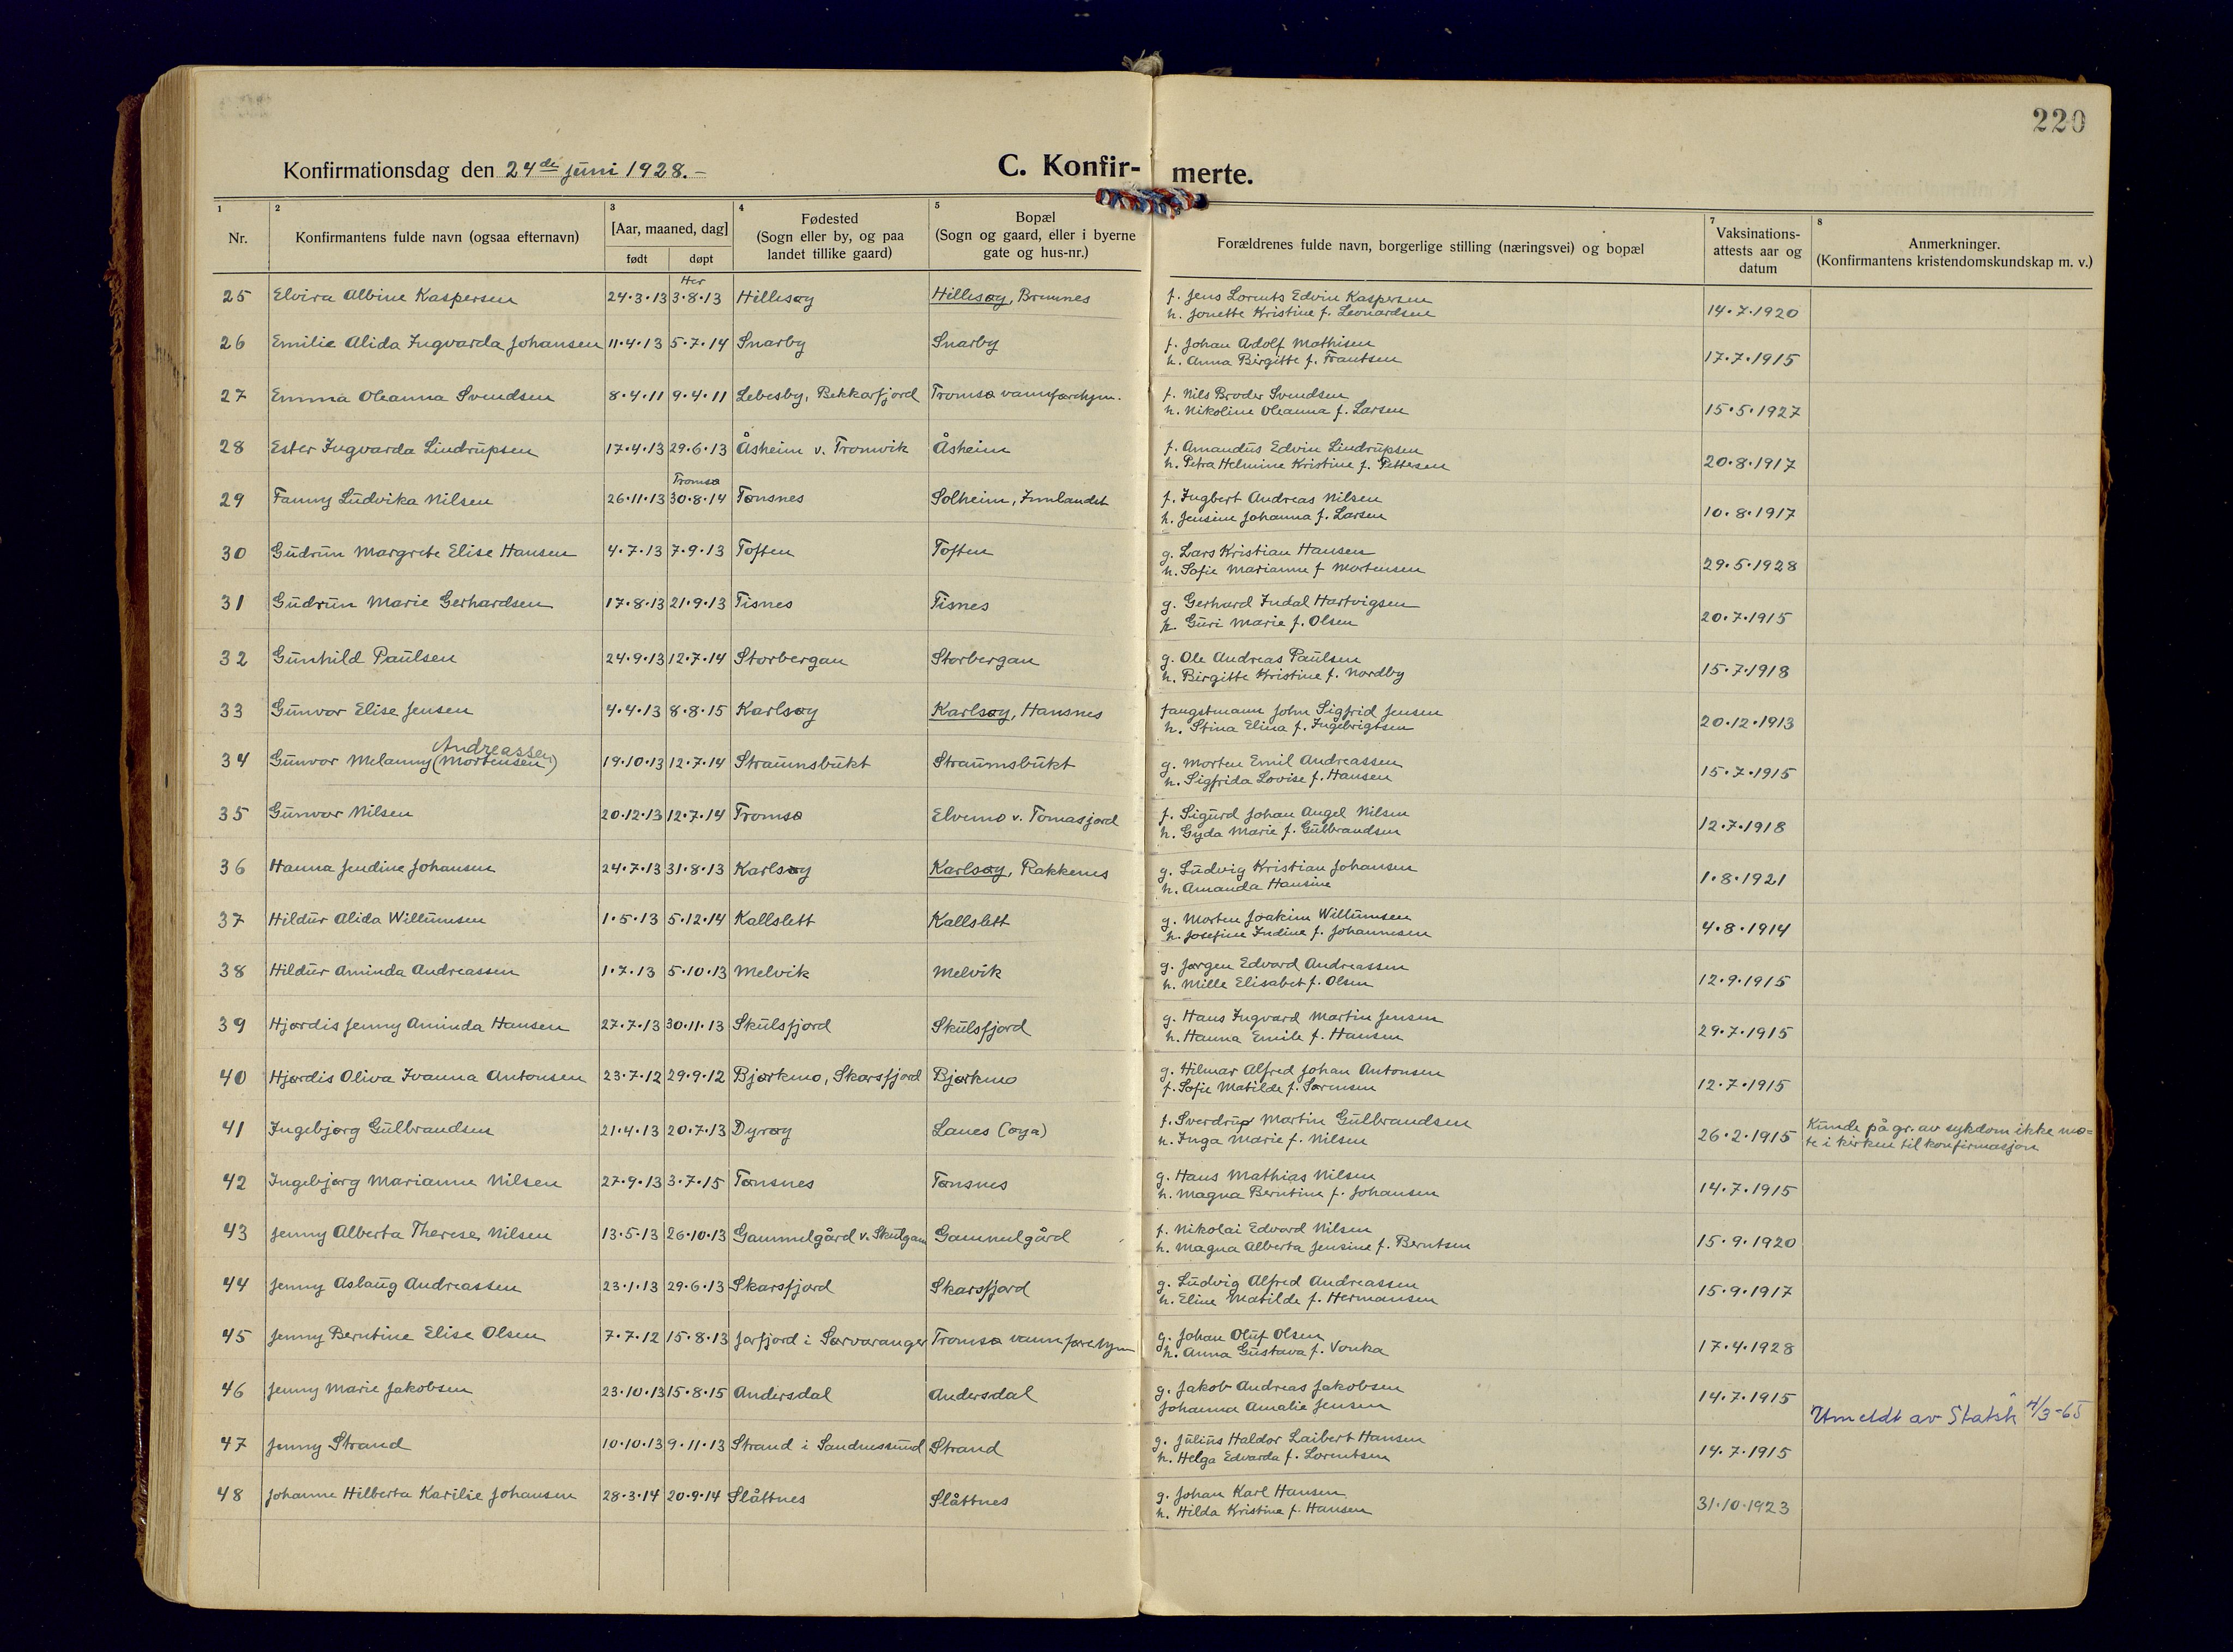 220
Konfirmationsdag den 24de juni 1928.-
C. Konfir- merte.
1 2 3 4 5 7 8
Nr.
Konfirmantens fulde navn (ogsaa efternavn)
[Aar, maaned, dag]
født døpt
Fødested
(Sogn eller by, og paa
landet tillike gaard)
Bopæl
(Sogn og gaard, eller i byerne
gate og hus-nr.)
Forældrenes fulde navn, borgerlige stilling (næringsvei) og bopæl
Vaksinations-
attests aar og
datum
Anmerkninger.
(Konfirmantens kristendomskundskap m. v.)
Her
25 Elvira Albine Kaspersen 24·3·13 3·8·13 Hillesøy Hillesøy, Brennes f. Jens Lorents Edvin Kaspersen
h. Jonette Kristine f. Leonardsen 14·7·1920
26 Emilie Alida Ingvarda Johansen 11·4·13 5·7·14 Snarby Snarby f. Johan Adolf Mathisen
h. Anna Birgitte f. Frantsen 17·7·1915
27 Emma Oleanna Svendsen 8·4·11 9·4·11 Lebesby, Bekkarfjord Tromsø vannførehjm. f. Nils Broder Svendsen
h. Nikoline Oleanna f. Larsen 15·5·1927
28 Ester Ingvarda Lindrupsen 17·4·13 29·6·13 Åsheim v. Tromvik Åsheim f. Amandus Edvin Lindrupsen
h. Petra Helmine Kristine f. Pettersen 20·8·1917
Tromsø
29 Fanny Ludvika Nilsen 26·11·13 30·8·14 Tønsnes Solheim, Innlandet f. Ingbert Andreas Nilsen
h. Jensine Johanna f. Larsen 10·8·1917
30 Gudrun Margrete Elise Hansen 4·7·13 7·9·13 Toften Toften g. Lars Kristian Hansen
h. Sofie Marianne f Mortensen 29·5·1928
31 Gudrun Marie Gerhardsen 17·8·13 21·9·13 Tisnes Tisnes g. Gerhard Indal Hartvigsen
h. Guri Marie f. Olsen 20·7·1915
32 Gunhild Paulsen 24·9·13 12·7·14 Storbergan Storbergan g. Ole Andreas Paulsen
h. Birgitte Kristine f. Nordby 15·7·1918
33 Gunvor Elise Jensen 4·4·13 8·8·15 Karlsøy Karlsøy, Hansnes fangstmann John Sigfrid Jensen
h. Stina Elina f. Ingebrigtsen 20·12·1913
Andreassen
34 Gunvor Melanny (Mortensen) 19·10·13 12·7·14 Straumsbukt Straumsbukt g. Morten Emil Andreassen
h. Sigfrida Lovise f. Hansen 15·7·1915
35 Gunvor Nilsen 20·12·13 12·7·14 Tromsø Elvemo v. Tomasjord f. Sigurd Johan Angel Nilsen
h. Gyda Marie f. Gulbrandsen 12·7·1918
36 Hanna Jendine Johansen 24·7·13 31·8·13 Karlsøy Karlsøy, Rakkenes g. Ludvig Kristian Johansen
h. Amanda Hansine 1·8·1921
37 Hildur Alida Willumsen 1·5·13 5·12·14 Kallslett Kallslett g. Morten Joakim Willumsen
h. Josefine Indine f. Johannesen 4·8·1914
38 Hildur Aminda Andreassen 1·7·13 5·10·13 Melvik Melvik g. Jørgen Edvard Andreassen
h. Mille Elisabet f. Olsen 12·9·1915
39 Hjørdis Jenny Aminda Hansen 27·7·13 30·11·13 Skulsfjord Skulsfjord g. Hans Ingvard Martin Jensen
h. Hanna Emile f. Hansen 29·7·1915
40 Hjørdis Oliva Ivanna Antonsen 23·7·12 29·9·12 Bjørkmo, Skarsfjord Bjørkmo g. Hilmar Alfred Johan Antonsen
f. Sofie Matilde f. Sørensen 12·7·1915
41 Ingebjørg Gulbrandsen 21·4·13 20·7·13 Dyrøy Lanes (øya) f. Sverdrup Martin Gulbrandsen
h. Inga Marie f. Nilsen 26·2·1915 Kunde på gr. av sykdom ikke mø=
te i kirken til konfirmasjon
42 Ingebjørg Marianne Nilsen 27·9·13 3·7·15 Tønsnes Tønsnes g. Hans Mathias Nilsen
h. Magna Berntine f. Johansen 14·7·1915
43 Jenny Alberta Therese Nilsen 13·5·13 26·10·13 Gammelgård v. Skulgam Gammelgård f. Nikolai Edvard Nilsen
h. Magna Alberta Jensine f. Berntsen 15·9·1920
44 Jenny Aslaug Andreassen 23·1·13 29·6·13 Skarsfjord Skarsfjord g. Ludvig Alfred Andreassen
h. Eline Matilde f. Hermansen 15·9·1917
45 Jenny Berntine Elise Olsen 7·7·12 15·8·13 Jarfjord i Sørvaranger Tromsø vannførehjm g. Johan Oluf Olsen
h. Anna Gustava f. Vonka 17·4·1928
46 Jenny Marie Jakobsen 23·10·13 15·8·15 Andersdal Andersdal g. Jakob Andreas Jakobsen
Johanna Amalie Jensen 14·7·1915
Utmeldt av Statsk 4/3-65
47 Jenny Strand 10·10·13 9·11·13 Strand i Sandnessund Strand g. Julius Haldor Laibert Hansen
h. Helga Edvarda f. Lorentsen 14·7·1915
48 Johanne Hilberta Karilie Johansen 28·3·14 20·9·14 Slåttnes Slåttnes g. Johan Karl Hansen
h. Hilda Kristine f. Hansen 31·10·1923